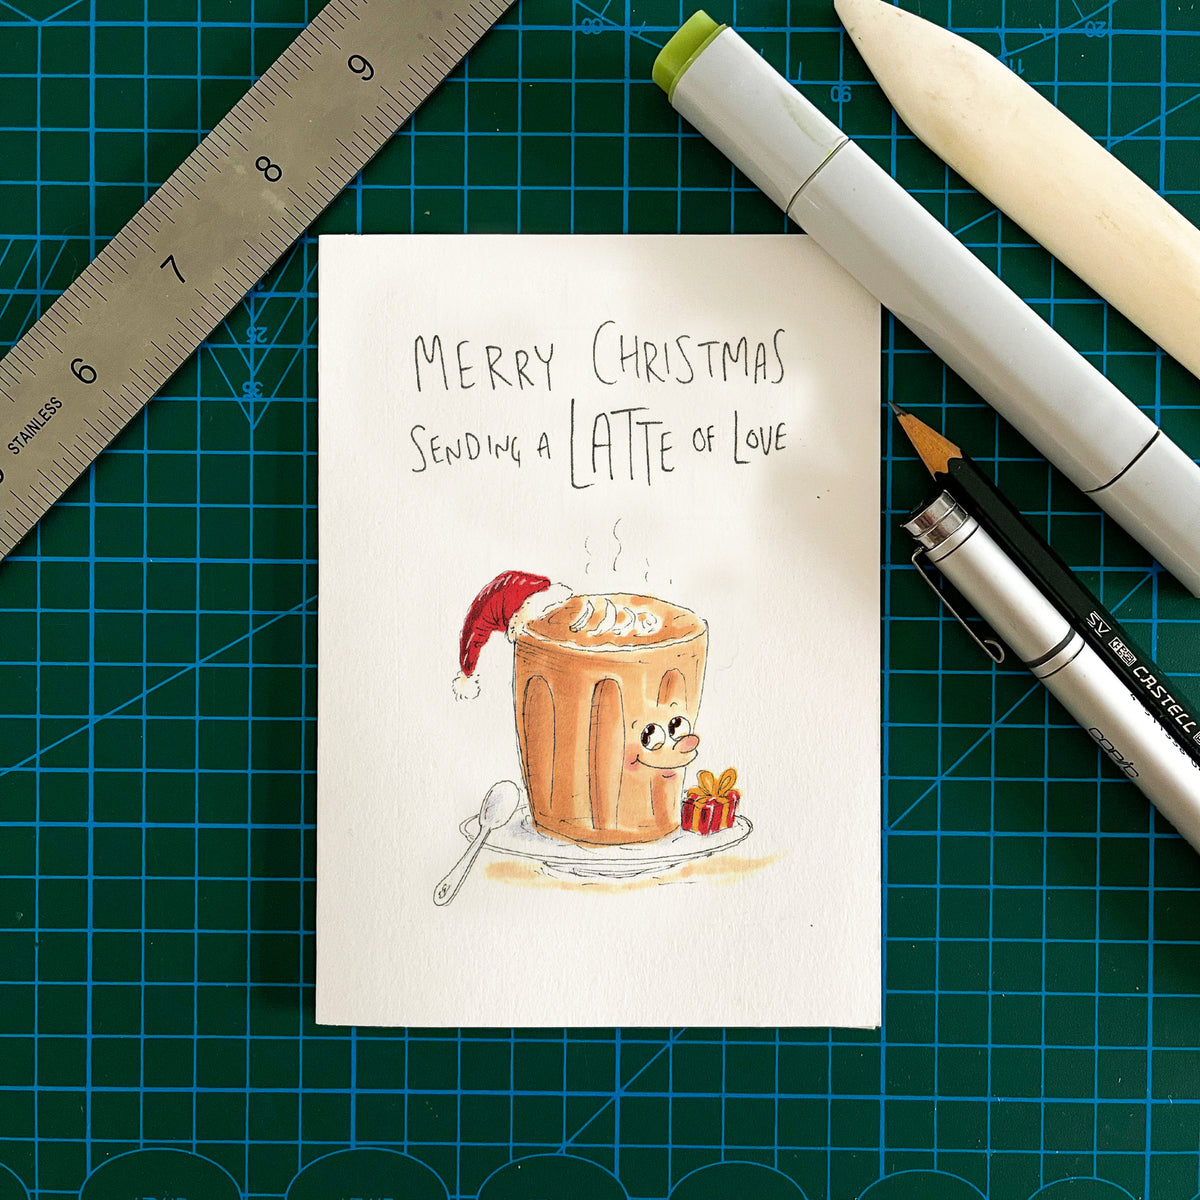 MERRY CHRISTMAS
SENDING A LATTE OF LOVE
9
8
7
6
STAINLESS
CASTELL
COPIC